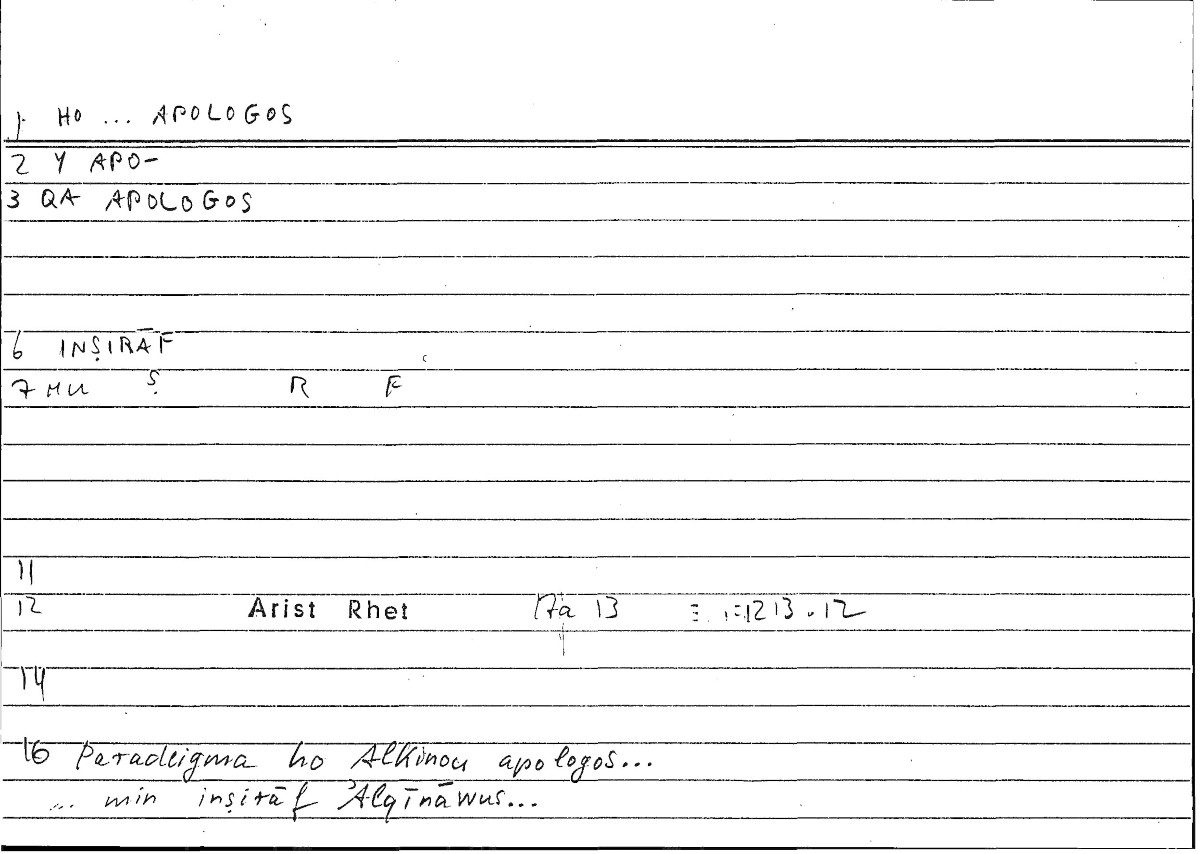 1 HO ... APOLOGOS
2 Y APO-
3 QA APOLOGOS
6 INṢIRĀF
7 MU Ṣ R F
11
12 Arist Rhet 17a 13 213.12
14
16 Paradeigma ho Alkinou apologos...
... min inṣirāf ʾAlqīnāwus...